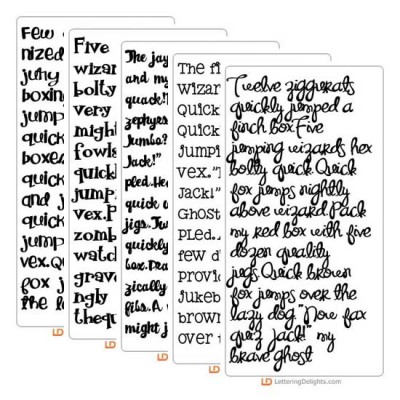 Few
nized
juhy
boxin
jump
quick
boxe
quick
and j
quick
jump
vex.Q
fox j
the l
Five
wizar
bolty
very
might
fowls
quick
jump
vex.P
zomb
watch
grave
ngly
thequ
The jay
and my
quack!
zephyrs
Jumbo?
Jack!"
pled.He
quick
jigs.Tw
quickly
box.Pea
zically
fibs.A
might j
The fi
wizar
Quick
Quick
jumpi
vex."T
Jack!"
Ghost
pled.
few d
provi
jukeb
brown
over t
Twelve ziggurats
quickly jumped a
finch box.Five
jumping wizards hex
bolty quick.Quick
fox jumps nightly
above wizard.Pack
my red box with five
dozen quality
jugs.Quick brown
fox jumps over the
lazy dog."Now fax
quiz Jack!" my
brave ghost
LD
LD
LD
LD
LD LetteringDelights.com